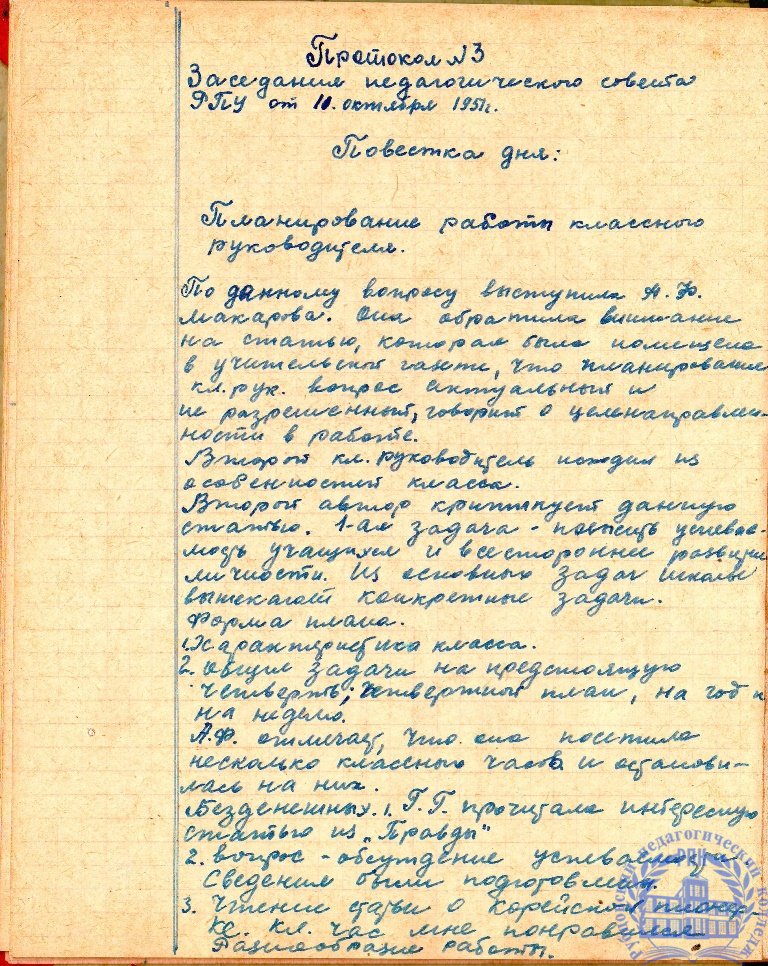 Протокол №3
Заседания педагогического совета
РПУ от 10. октября 1951г.
Повестка дня:
Планирование работы классного
руководителя.
По данному вопросу выступила А. Ф.
Макарова. Она обратила внимание
на статью, которая была помещена
в учительской газете, что планирование
кл. рук. вопрос актуальный и
не разрешенный, говорит о целенаправлен-
ности в работе.
Второй кл. руководитель исходил из
особенностей класса.
Второй автор критикует данную
статью. 1-ая задача - повысить успевае-
мость учащихся и всестороннее развитие
личности. Из основных задач школы
вытекают конкретные задачи.
Форма плана.
1. Характеристика класса.
2. Общие задачи на предстоящую
четверть; четвертной план, на год и
на неделю.
А.Ф. отмечает, что она посетила
несколько классных часов и останови-
лась на них.
Безденежных. 1. Г.Г. прочитала интересную
статью из „Правды"
2. вопрос - обсуждение успеваемости
Сведения были подготовлены.
3. Чтение статьи о корейской пионер-
ке. кл. час мне понравился
Разнообразие работы.
педагогический колледж
РПУ